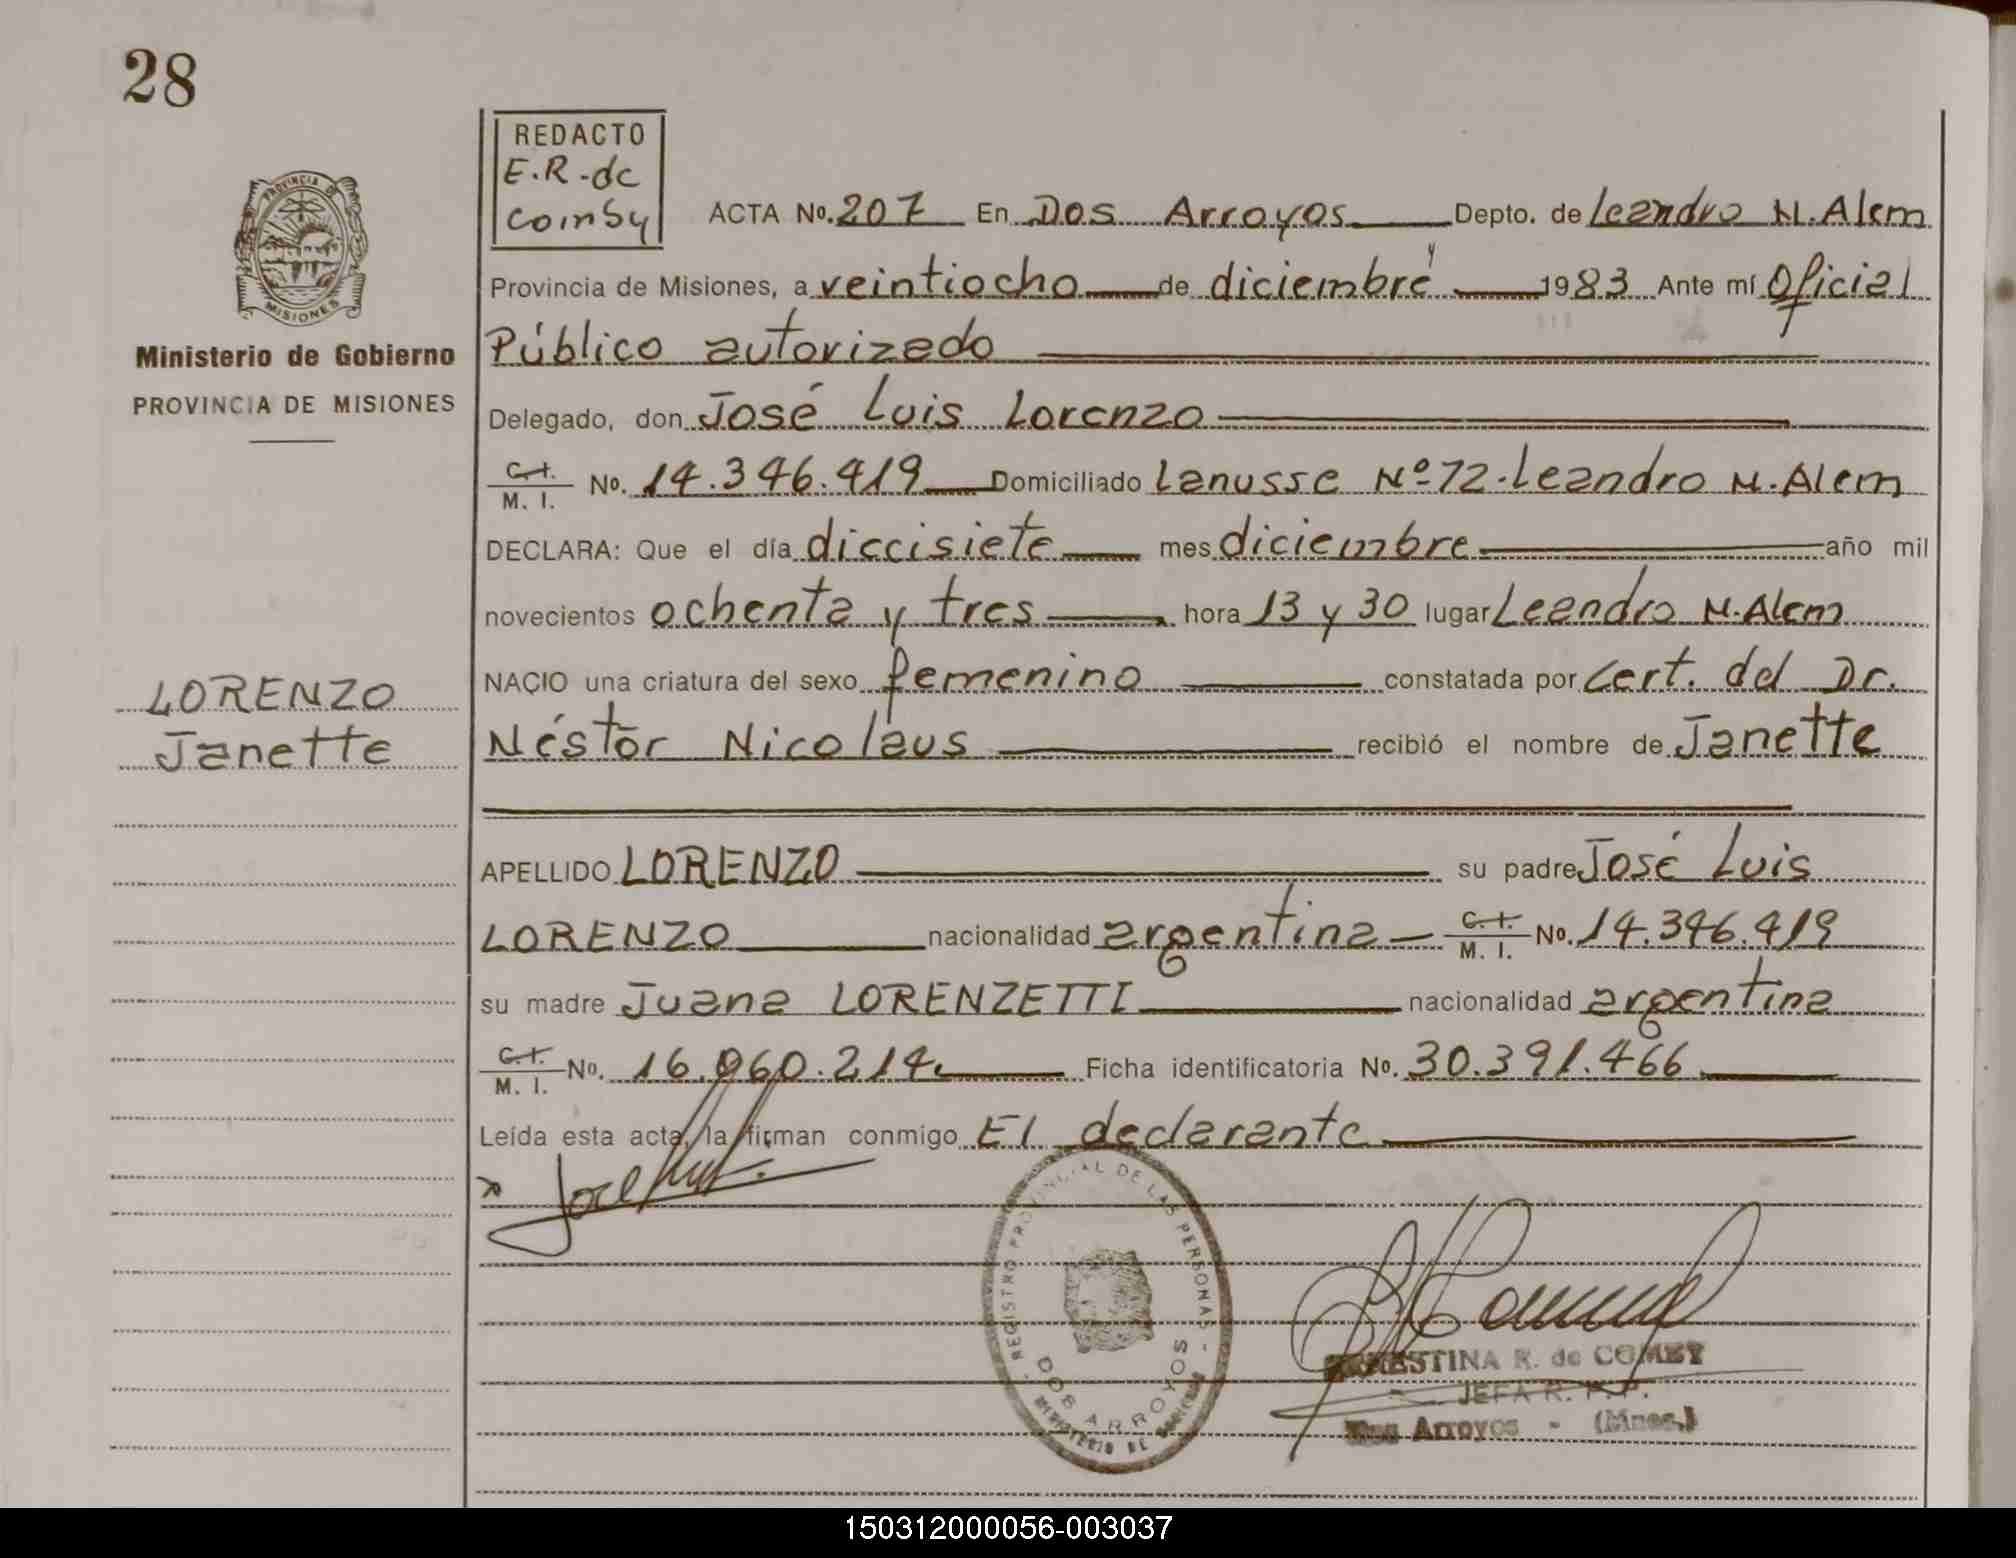 28
REDACTO
E.R. de
Comby
ACTA No. 207 En Dos Arroyos Depto. de Leandro N. Alem
Provincia de Misiones, a veintiocho de diciembre 1983 Ante mí Oficial
Público autorizado
Delegado, don José Luis Lorenzo
C.I.
M. I. No. 14.346.419 Domiciliado Lanusse Nº 72-Leandro N. Alem
DECLARA: Que el día diecisiete mes diciembre año mil
novecientos ochenta y tres hora 13 y 30 lugar Leandro N. Alem
NACIO una criatura del sexo femenino constatada por Cert. del Dr.
Néstor Nicolaus recibió el nombre de Janette
APELLIDO LORENZO su padre José Luis
LORENZO nacionalidad argentina C.I. M. I. No. 14.346.419
su madre Juana LORENZETTI nacionalidad argentina
C.I.
M. I. No. 16.060.214 Ficha identificatoria No. 30.391.466
Leída esta acta, la firman conmigo El declarante
PROVINCIA DE
MISIONES
Ministerio de Gobierno
PROVINCIA DE MISIONES
LORENZO
Janette
REGISTRO PROVINCIAL DE LAS PERSONAS
DOS ARROYOS
MINISTERIO DE
ERNESTINA R. de COMBY
JEFA R. P. P.
Dos Arroyos - (Mnes.)
150312000056-003037